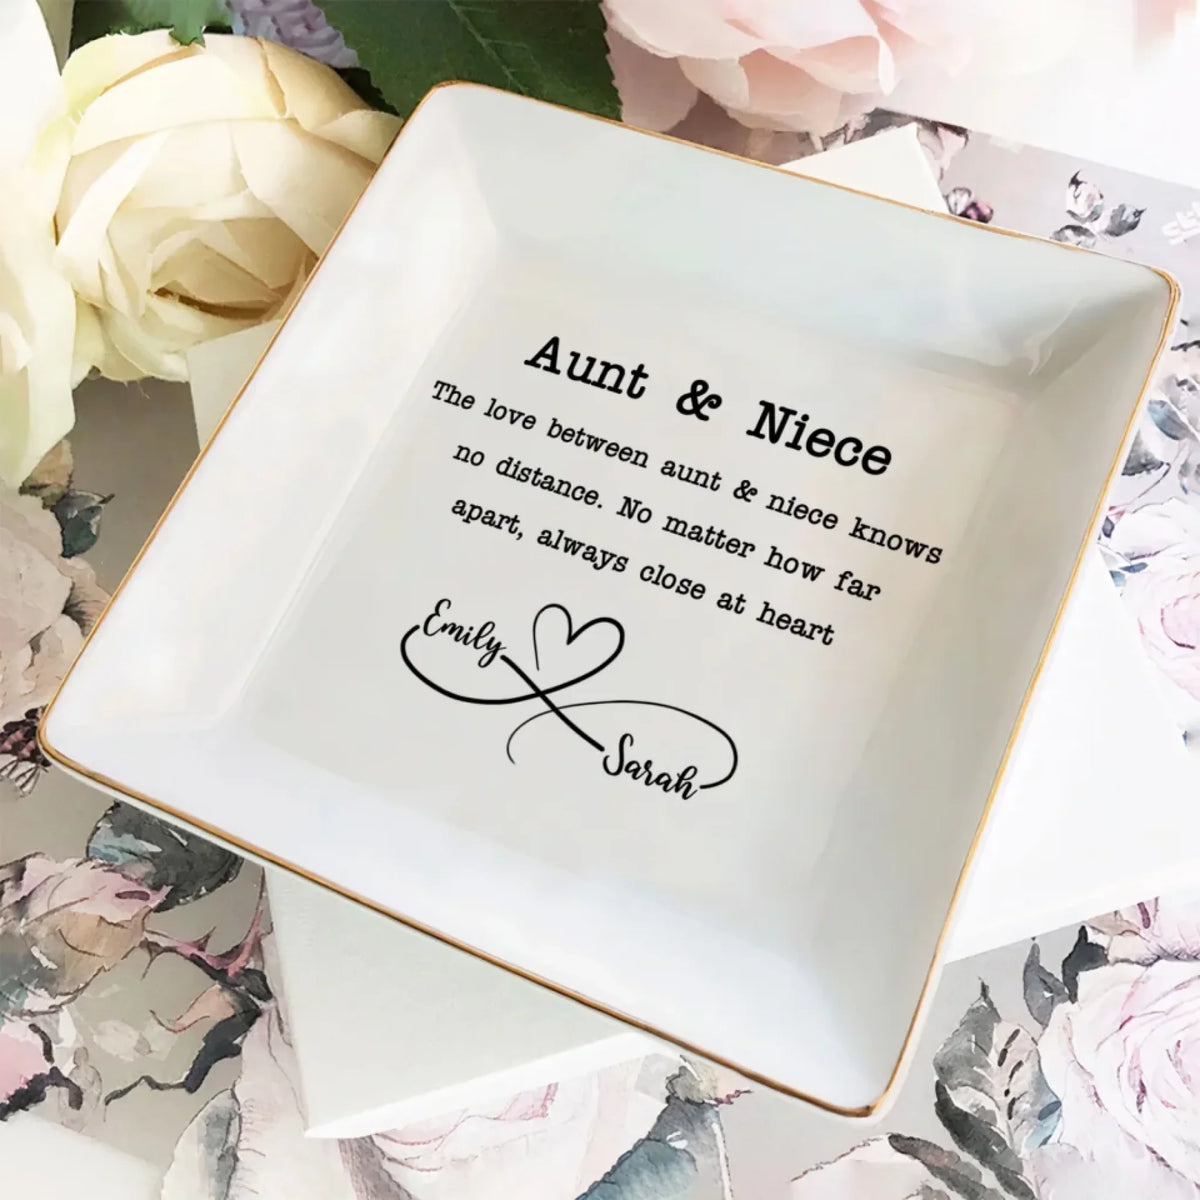 Aunt & Niece
The love between aunt & niece knows
no distance. No matter how far
apart, always close at heart
Emily
Sarah